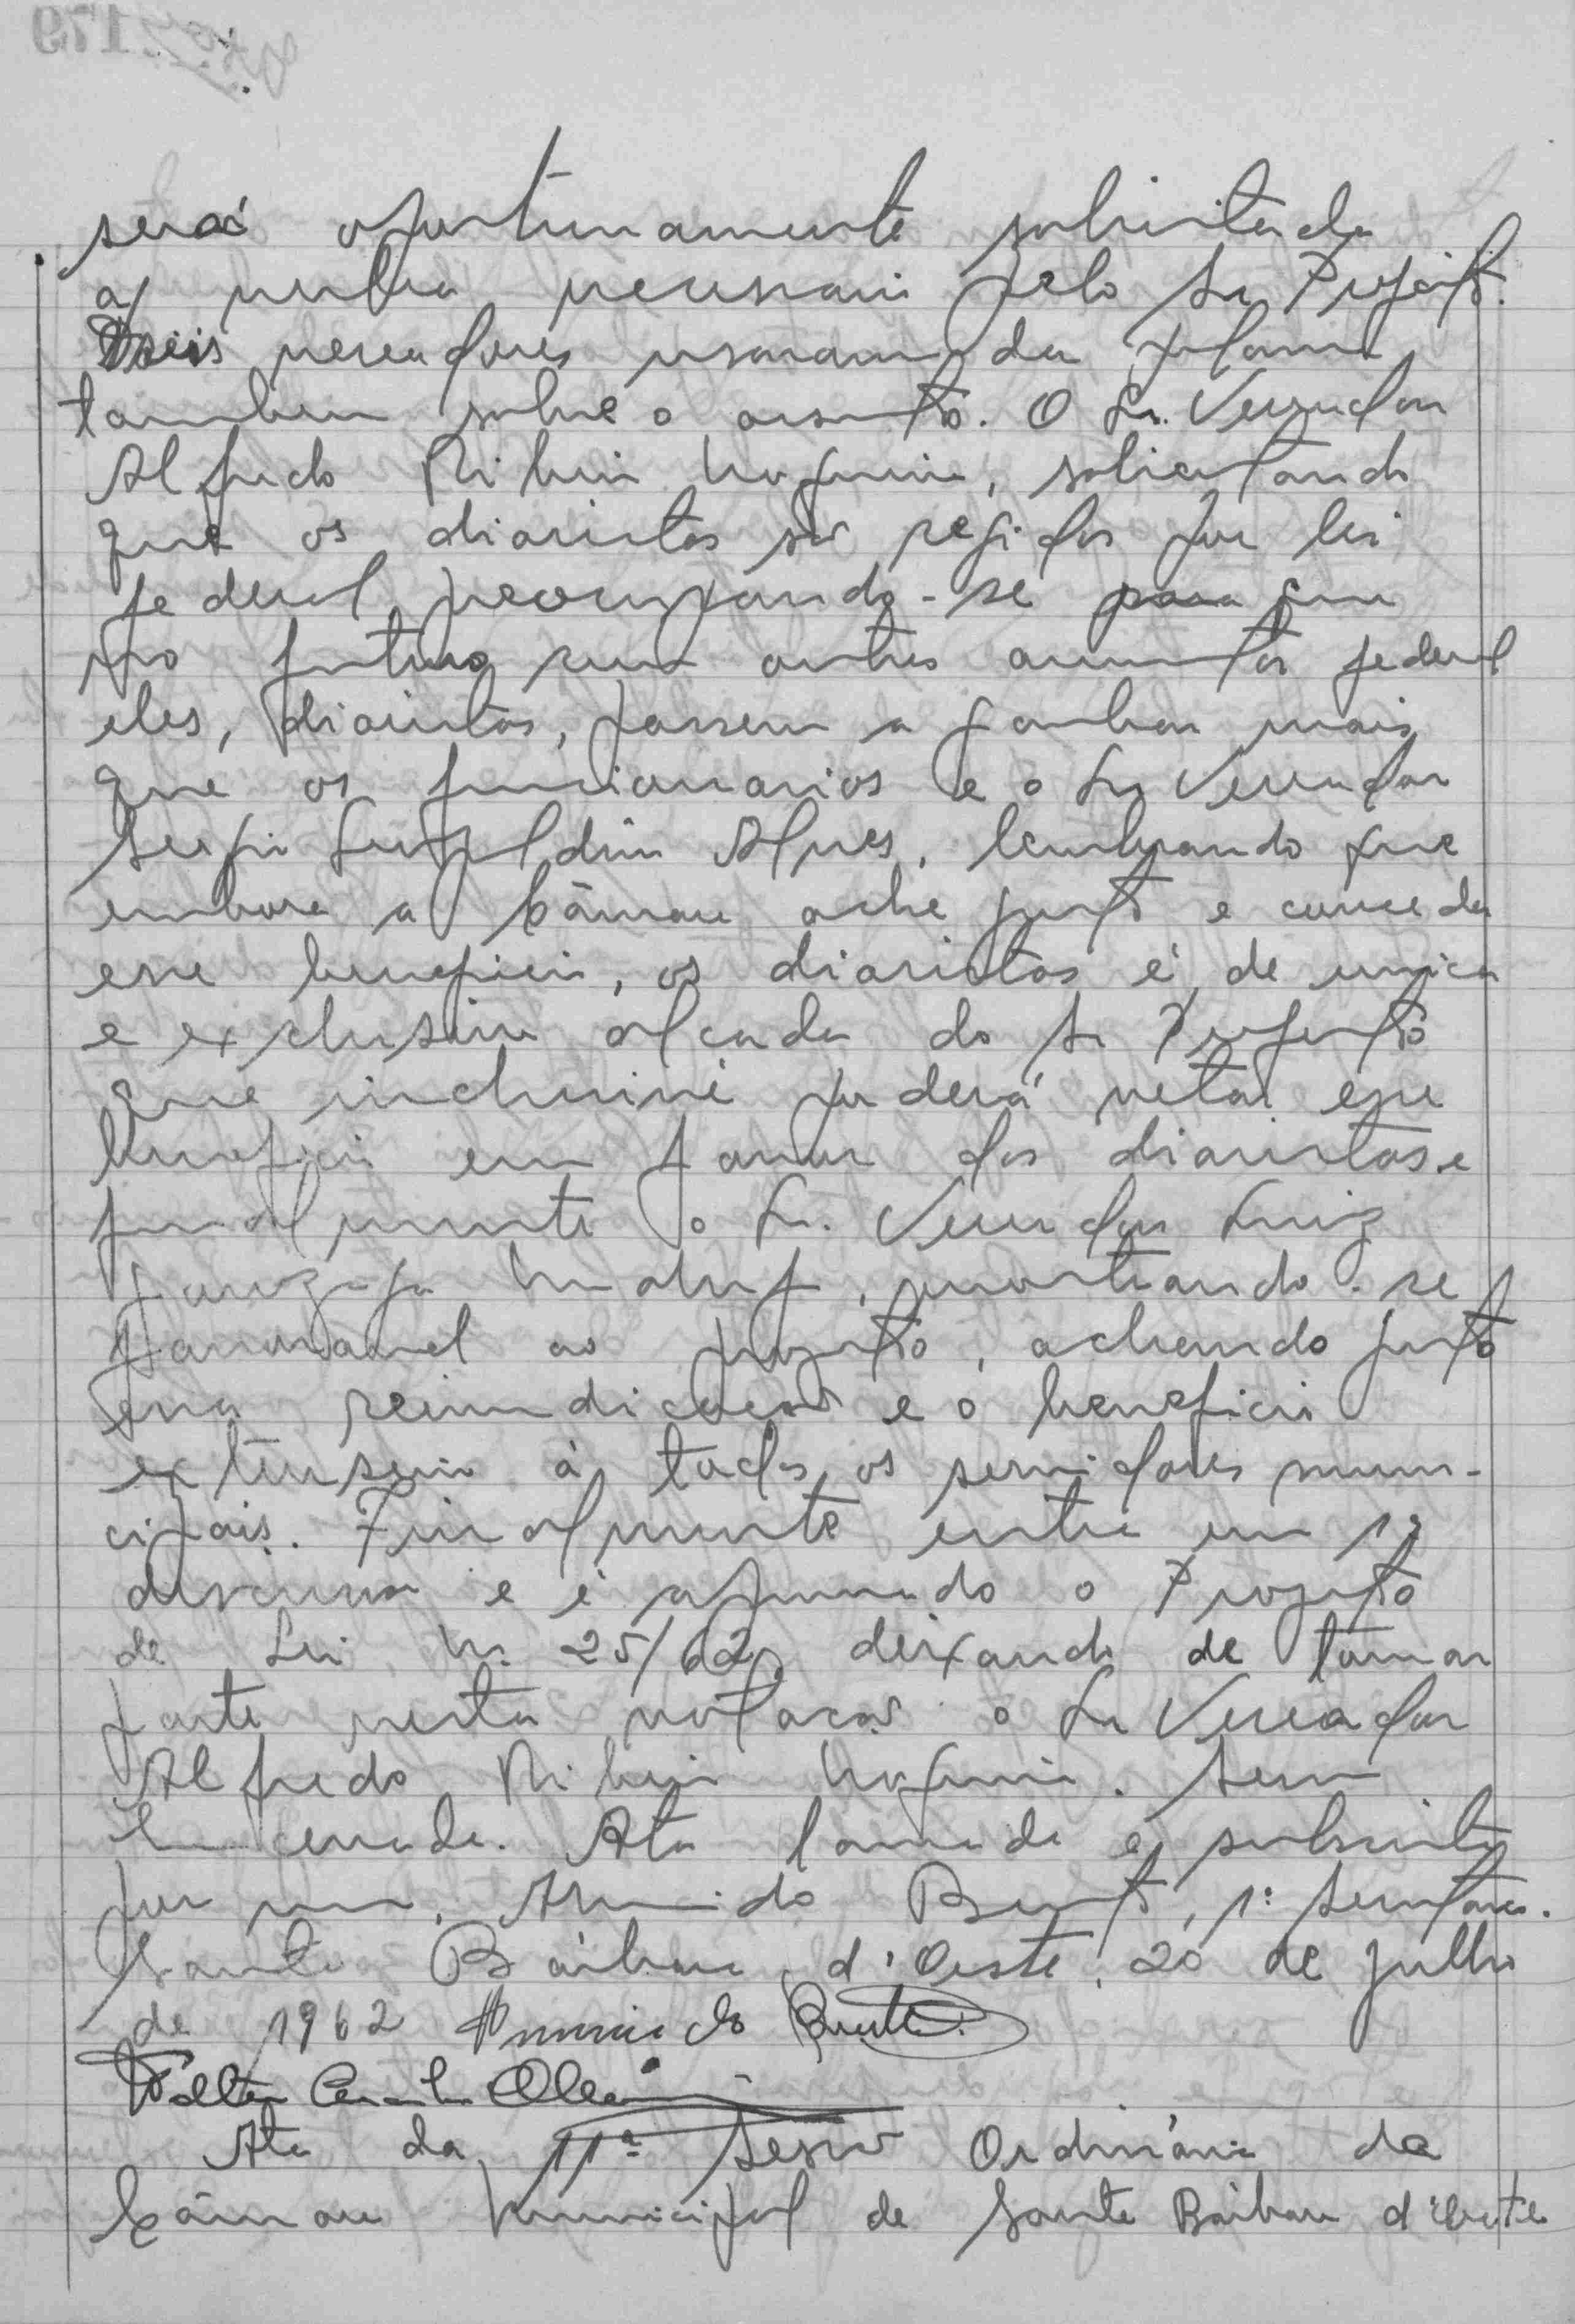 será oportunamente solicitada
a verba necessaria pelo Sr Prefeito.
Dois vereadores usaram da palavra
tambem sobre o assunto. O Sr. Vereador
Alfredo Ribeiro, solicitando
que os diaristas são regidos por lei
federal, preocupando-se para que
no futuro com outros aumentos federal
eles, diaristas, passem a ganhar mais
que os funcionarios e o Sr Vereador
Sergio Leopoldino Alves, lembrando que
embora a Câmara ache justo e conceda
esse beneficio, os diaristas é de unica
e exclusiva alçada do Sr Prefeito
que inclusive poderá vetar esse
beneficio em favor dos diaristas e
finalmente o Sr. Vereador Luiz
Gonzaga Maluf, mostrando-se
favoravel ao projeto, achando justo
essa reivindicacao e o beneficio
extensivo à todos os servidores muni-
cipais. Finalmente entra em 1ª
discussão e é aprovado o Projeto
de Lei N. 25/62, deixando de tomar
parte nesta votacao o Sr Vereador
Alfredo Ribeiro. Sessão
Encerrada. Ata lavrada e subscrita
por mim, Armindo, 1º Secretario.
Santa Bárbara d'Oeste, 20 de julho
de 1962
Ata da 11ª Sessão Ordinária da
Câmara Municipal de Santa Bárbara d'Oeste
179